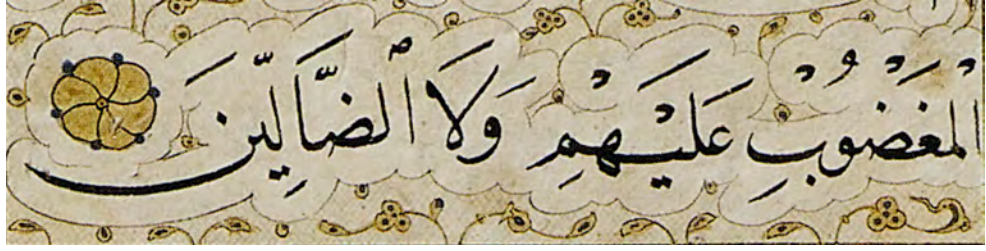 الْمَغْضُوبِ عَلَيْهِمْ وَلَا ٱلضَّالِّينَ